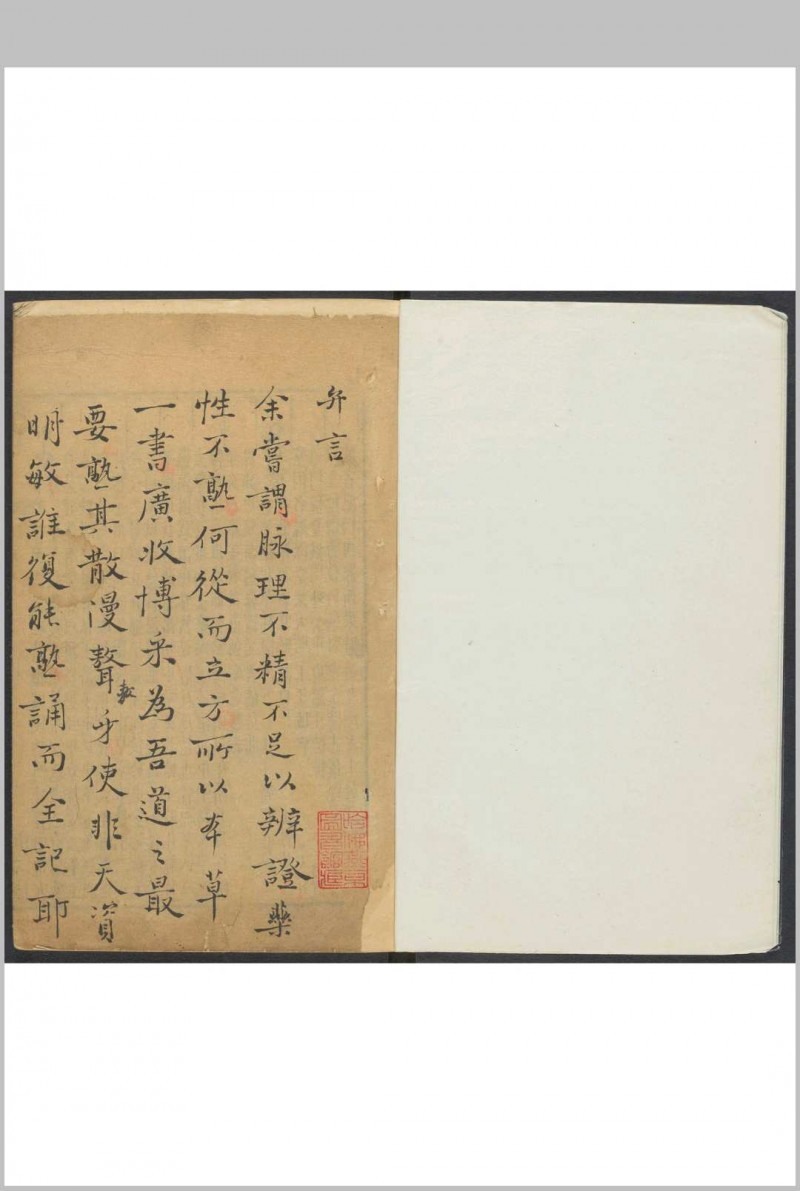 弁言
余嘗謂脉理不精不足以辨證藥
性不熟何從而立方所以本草
一書廣收博采為吾道之最
要熟其散漫聱牙使非天資
明敏誰復能熟誦而全記耶